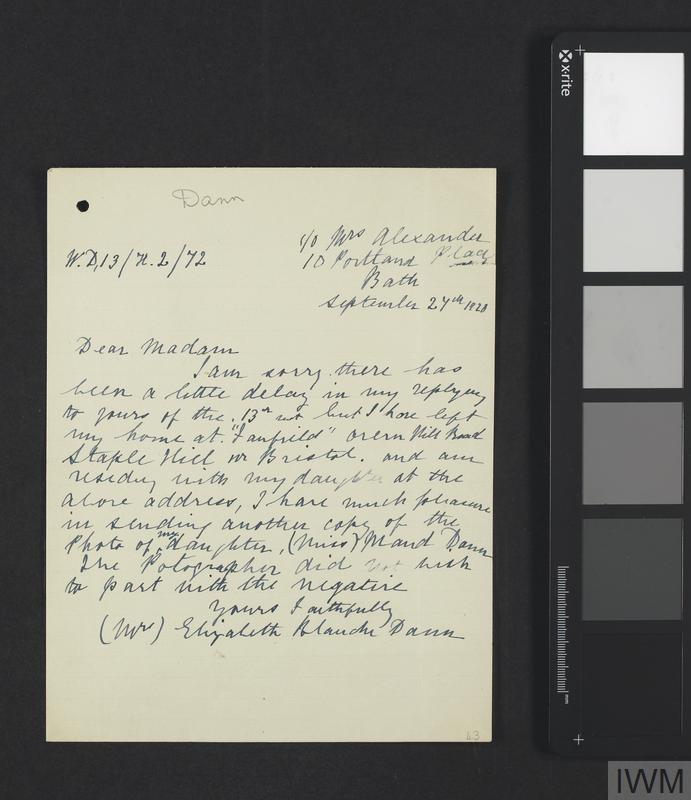 Dann
c/o Mrs Alexander
W.D,13/H.2/72
10 Portland Place
Bath
September 27th 1920
Dear Madam
I am sorry there has
been a little delay in my replying
to yours of the 13th but I have left
my home at "Fairfield" Hill Road
Staple Hill nr Bristol. and am
residing with my daughter at the
above address, I have much pleasure
in sending another copy of the
Photo of my daughter, (Miss) Maud Dann
The Potographer did not wish
to part with the negative
Yours Faithfully
(Mrs) Elizabeth Blanche Dann
43
x-rite
mm
IWM